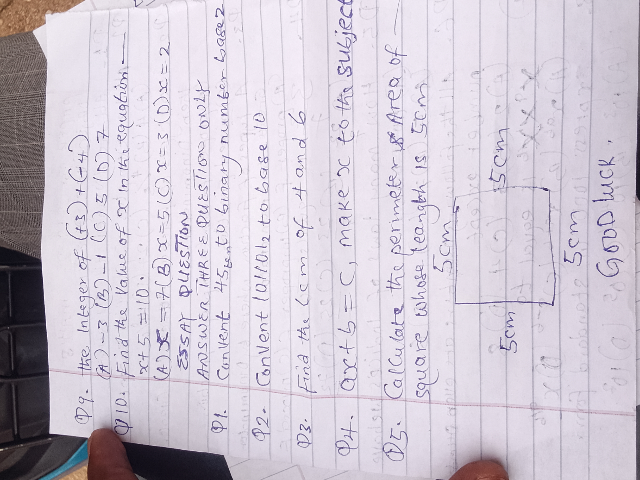 Q9. the Integer of (+3) + (-4)
(A) -3 (B) -1 (C) 5 (D) 7
Q10. Find the Value of x in the equation
x+5 = 10.
(A) x = 7 (B) x = 5 (C) x = 3 (D) x = 2
ESSAY QUESTION
ANSWER THREE QUESTION ONLY
Q1. Convent 45ten to binary number base 2
Q2. Convent 101101₂ to base 10
Q3. Find the Lcm of 4 and 6
Q4. ax+b = C, make x to the subject
Q5. Calculate the perimeter & Area of
square whose leangth is 5cm
5cm
5cm
5cm
5cm
GOOD LUCK.